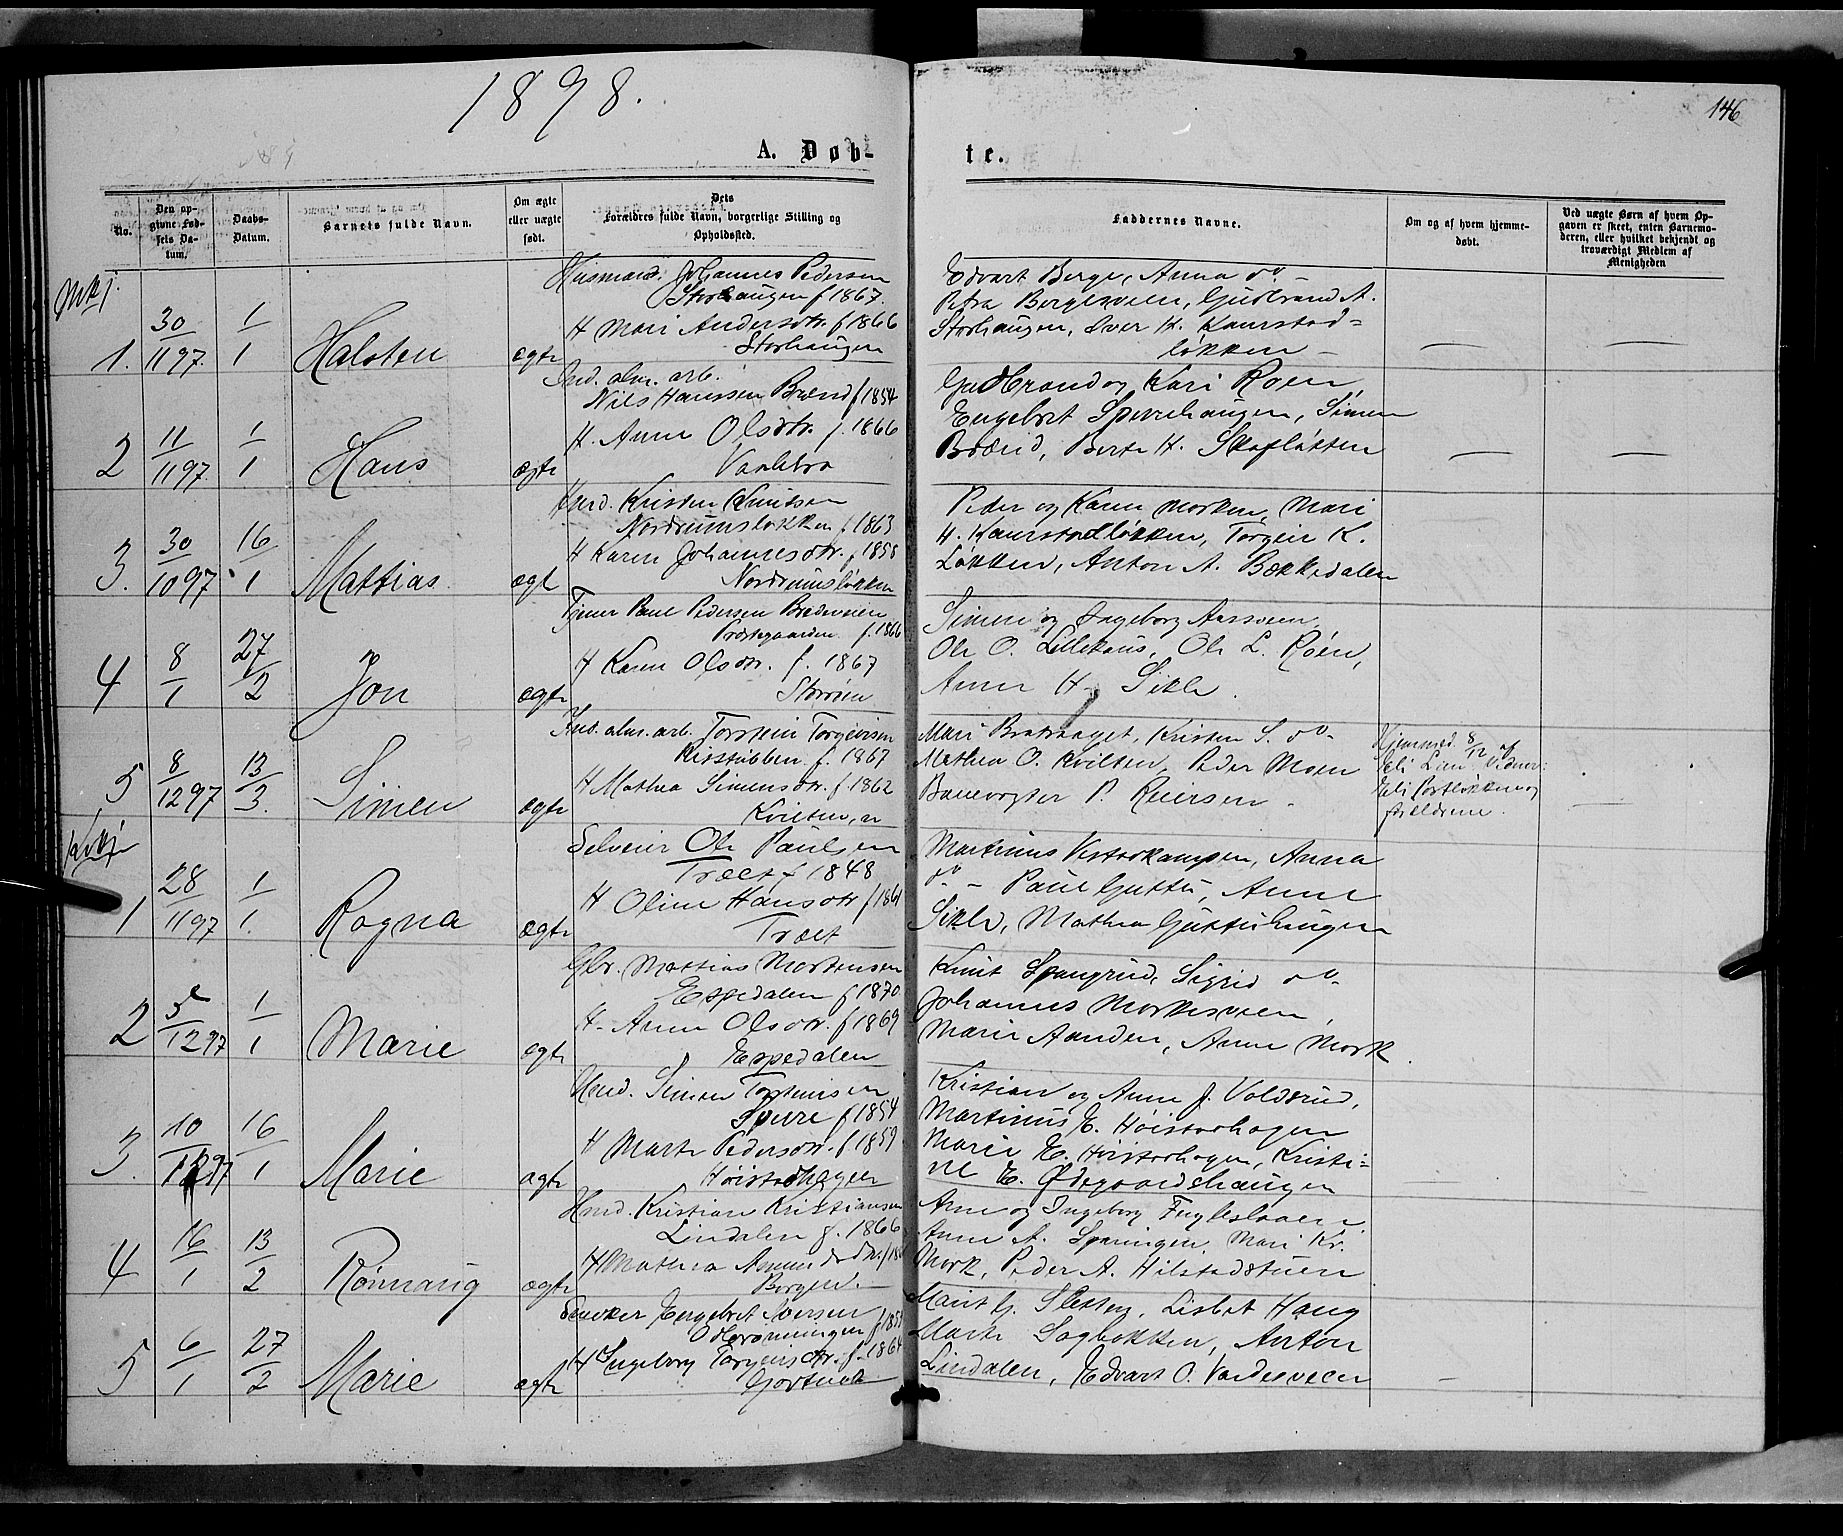 1898.
146
A. Døb-
te.
No.
Den op-
givne Fød-
sels Da-
tum.
Daabs-
Datum.
Barnets fulde Navn.
Om ægte
eller uægte
født.
Dets
Forældres fulde Navn, borgerlige Stilling og
Opholdssted.
Faddernes Navne.
Om og af hvem hjemme-
døbt.
Ved uægte Børn af hvem Op-
gaven er skeet, enten Barnemo-
deren, eller hvilket bekjendt og
troværdigt Medlem af
Menigheden
Mkj.
1. 30/11 97. 1/1 Halsten ægte
Husmand Johannes Pedersen
Storhaugen f 1867.
H Mari Andersdtr. f 1866
Storhaugen
Edvart Berge, Anna do -
Petra Bergesveen, Gudbrand A.
Storhaugen, Iver H. Kamrstad-
løkken -
2 11/11 97. 1/1 Hans ægte
Ind. alm. arb.
Nils Hanssen Brænd f 1854
H. Anne Olsdtr. f. 1866
Vaalebra
Gudbrand og Kari Roen
Engebret Sperrehaugen, Simen
Brænd, Berte H. Skafløtten
3. 30/10 97. 16/1 Mattias. ægt
Hmd. Kristen Knutsen
Nordrumsløkken f 1863
H Karen Johannesdtr. f 1858
Nordrumsløkken
Peder og Karen Morken, Mari
H. Kamrstadløkken, Torgeir K.
Løkken, Anton A. Bækkedalen
4 8/1 27/2 Jon ægte
Tjener Paul Pedersen Brædeveien
Præstegaarden f. 1866
H Karen Olsdtr. f. 1867
Storøien
Simen og Ingeborg Aasveen,
Ole O. Lillehaus, Ole L. Røen,
Anne H. Sikle.
5 8/12 97 13/3. Simen ægte
Ind. alm. arb. Torstein Torgeirsen
Risstubben f. 1867
H Mathea Simensdtr. f 1862
Kvilten, n
Mari Bratvaaget, Kristen S. do -
Mathea O. Kvilten, Peder Moen
Banevogter P. Reiersen -
Hjemmed. 8/12 af
Eli Lien. Vidner:
Eli Portløkken og
forældrene.
Kvj.
1 28/11 97 1/1. Ragna ægte
Selveier Ole Paulsen
Træet f 1848
H Oline Hansdtr f 1861
Træet
Martinus Vesterkampen, Anna
do - Paul Guttu, Anne
Sikle, Mathea Gutturhaugen
2 5/12 97 1/1 Marie ægte
Gbr. Mattias Mortensen
Espedalen f 1870
H - Anne Olsdtr. f 1869
Espedalen
Knut Spangrud, Sigrid do -
Johannes Morkesveen,
Marie Aanden, Anne Mork.
3. 10/12 97 16/1 Marie ægte
Hmd. Simen Torstensen
Sperre f 1854
H Marte Pedersdtr. f 1859
Høistadhagen
Kristian og Anne J. Voldsrud,
Martinus E. Høistadhagen
Marie E. Høistadhagen, Kristi-
ne E. Ødegaardshaugen
4 16/1 13/2 Rønnaug ægte
Hmd. Kristian Kristiansen
Lindalen f. 1866
H Mathea Amundsdtr. f 18
Borgen. -
Arne og Ingeborg Fuglesløen
Anne A. Sparingen, Mari Kr.
Mork, Peder A. Hilstadstuen
5 6/1 27/2 Marie ægte
Snekker Engebret Iversen
Odbrønningen f 185
H Ingeborg Torgeirsdtr. f. 1864
Marit G. Sletten, Lisbet Haug
Marte Sagbakken, Anton
Lindalen, Edvart O. Vardesveen